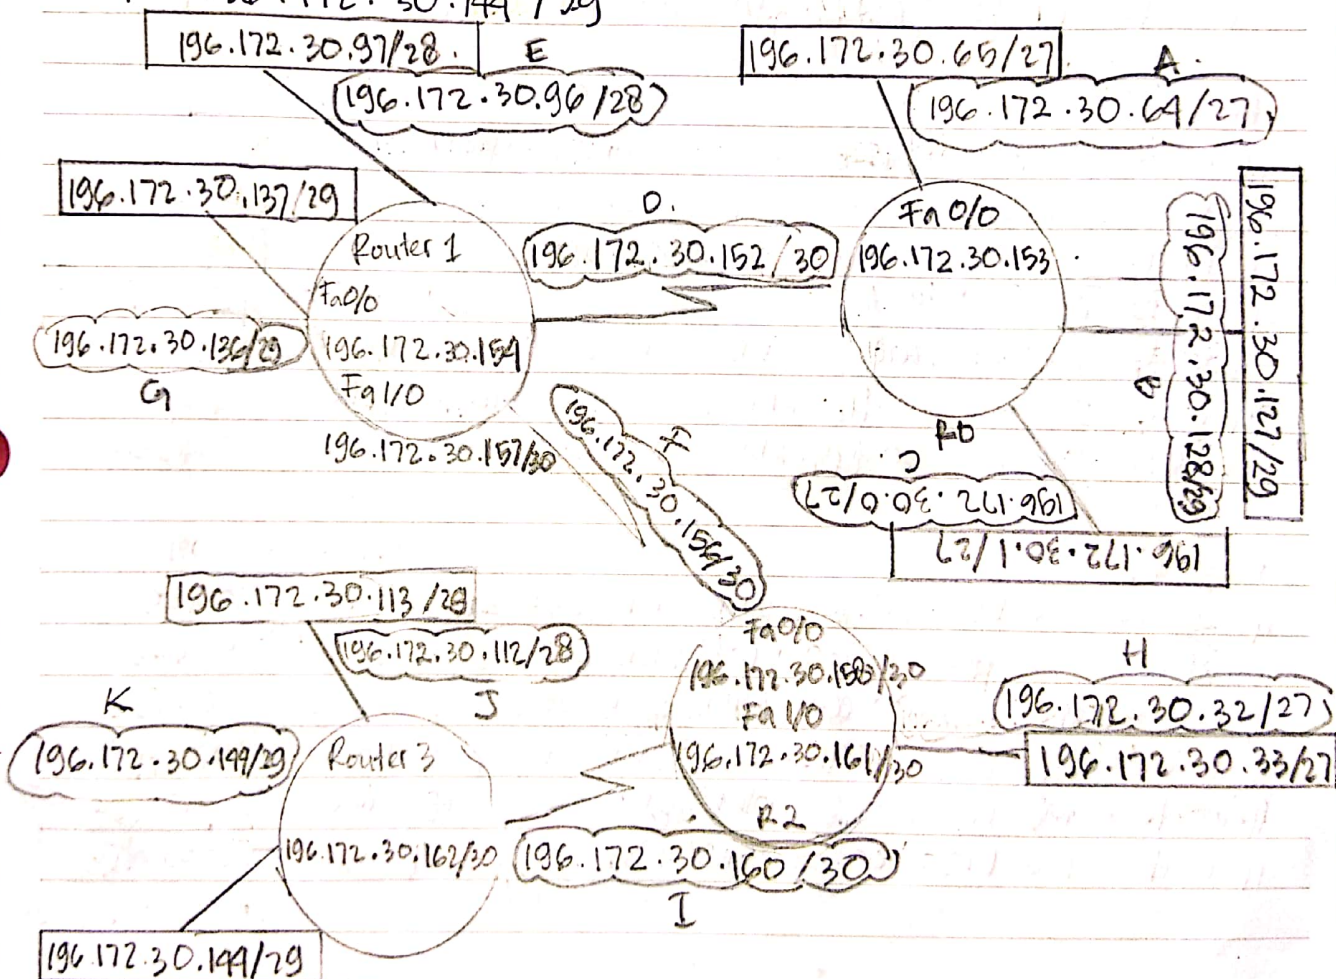 30.144 / 29
196.172.30.97/28.
E
196.172.30.96/28
196.172.30.65/27
A.
196.172.30.64/27
196.172.30.137/29
D.
196.172.30.152/30
Router 1
Fa0/0
196.172.30.154
Fa1/0
196.172.30.157/30
196.172.30.136/29
G
Fa0/0
196.172.30.153
R0
196.172.30.128/29
B
196.172.30.127/29
C.
196.172.30.0/27
196.172.30.1/27
F
196.172.30.156/30
196.172.30.113/28
196.172.30.112/28
J
K
196.172.30.144/29
Router 3
196.172.30.162/30
Fa0/0
196.172.30.158/30
Fa1/0
196.172.30.161/30
R2
H
196.172.30.32/27
196.172.30.33/27
196.172.30.160/30
I
196.172.30.144/29